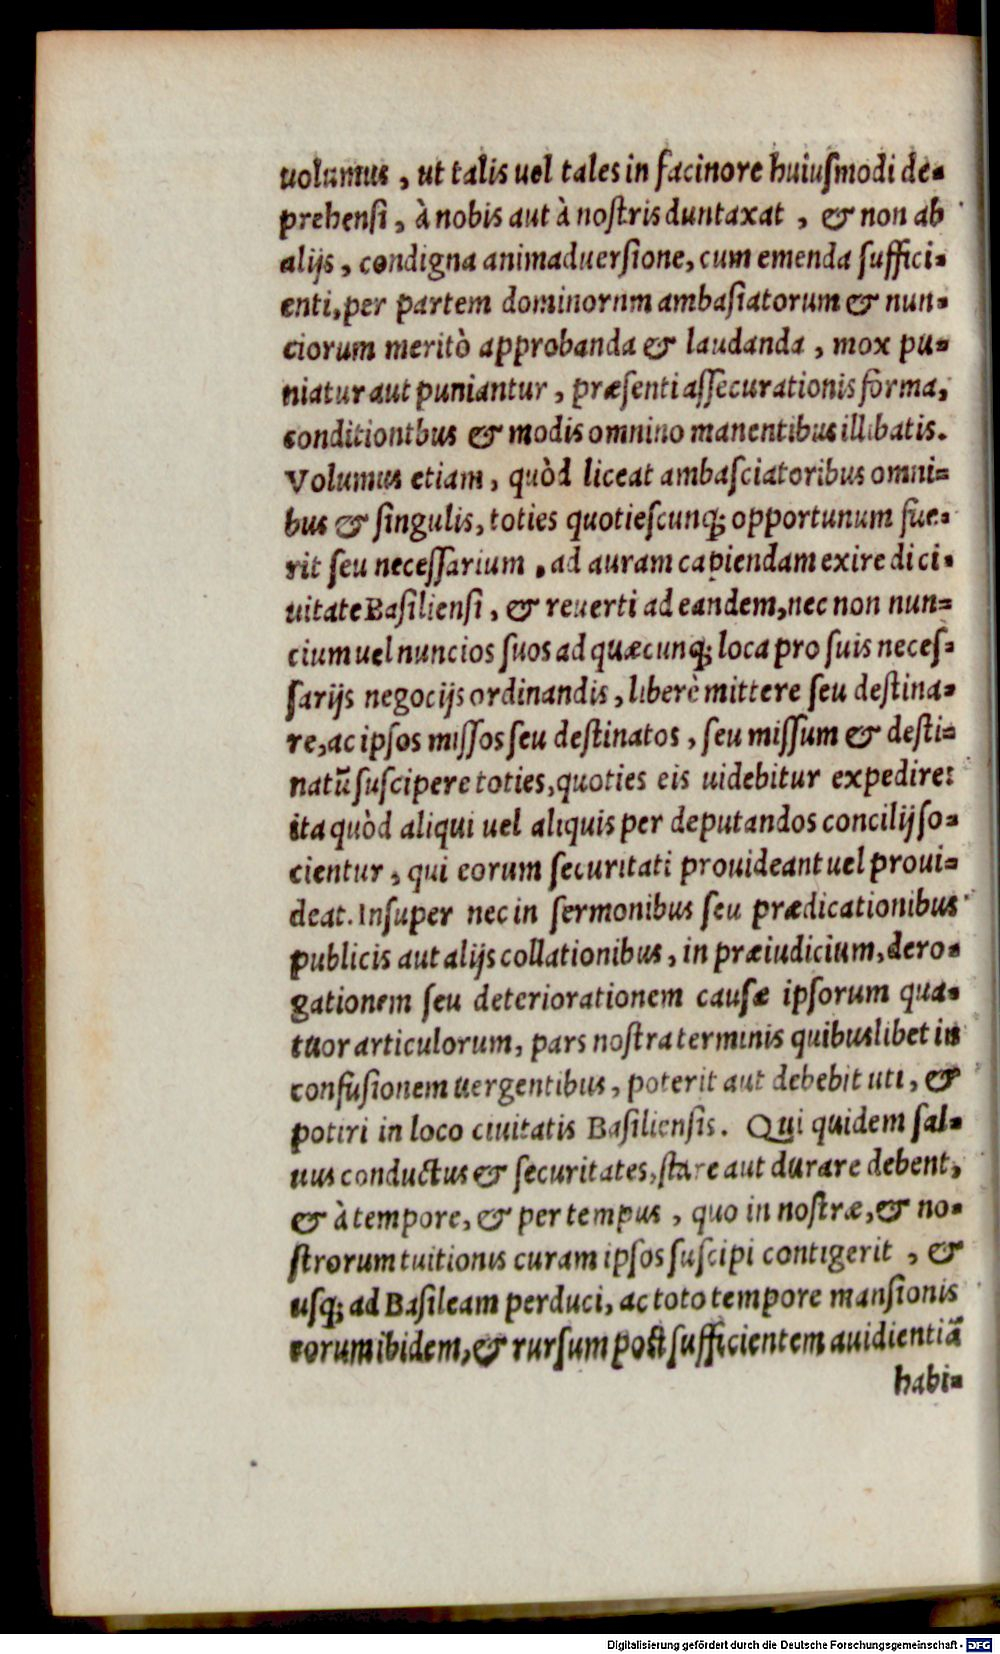 uolumus, ut talis uel tales in facinore huiuſmodi de-
prehenſi, à nobis aut à noſtris duntaxat, & non ab
alijs, condigna animaduerſione, cum emenda ſuffici-
enti, per partem dominornm ambaſiatorum & nun-
ciorum meritò approbanda & laudanda, mox pu-
niatur aut puniantur, præſenti aſſecurationis forma,
conditiontbus & modis omnino manentibus illibatis.
Volumus etiam, quòd liceat ambaſciatoribus omni-
bus & ſingulis, toties quotieſcunq; opportunum fue-
rit ſeu neceſſarium, ad auram capiendam exire di ci-
uitate Baſilienſi, & reuerti ad eandem, nec non nun-
cium uel nuncios ſuos ad quæcunq; loca pro ſuis neceſ-
ſarijs negocijs ordinandis, liberè mittere ſeu deſtina-
re, ac ipſos miſſos ſeu deſtinatos, ſeu miſſum & deſti-
natũ ſuſcipere toties, quoties eis uidebitur expedire:
ita quòd aliqui uel aliquis per deputandos concilij ſo-
cientur, qui eorum ſecuritati prouideant uel proui-
deat. Inſuper nec in ſermonibus ſeu prædicationibus
publicis aut alijs collationibus, in præiudicium, dero-
gationem ſeu deteriorationem cauſæ ipſorum qua-
tuor articulorum, pars noſtra terminis quibuslibet in
confuſionem uergentibus, poterit aut debebit uti, &
potiri in loco ciuitatis Baſilienſis. Qui quidem ſal-
uus conductus & ſecuritates, ſtare aut durare debent,
& à tempore, & per tempus, quo in noſtræ, & no-
ſtrorum tuitionis curam ipſos ſuſcipi contigerit, &
uſq; ad Baſileam perduci, ac toto tempore manſionis
eorum ibidem, & rurſum poſt ſufficientem auidientiã
habi-
Digitalisierung gefördert durch die Deutsche Forschungsgemeinschaft - DFG